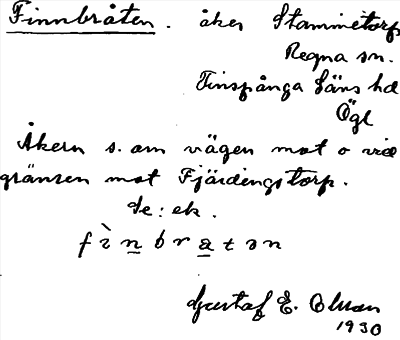 Finnbråten. åker Stammetorp
Regna sn.
Finspånga läns hd
Ögl
Åkern s. om vägen mot o vid
gränsen mot Fjärdingstorp.
Se: ek.
f ì n b r a t ə n
Gustaf E. Olsson
1930